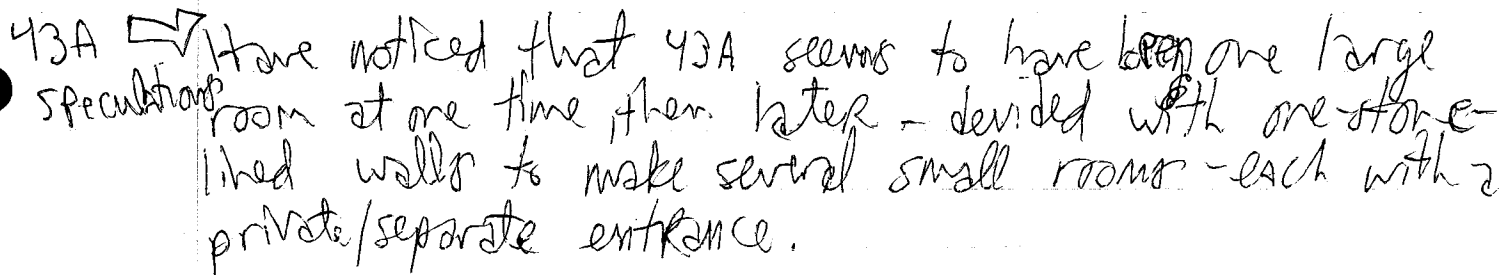 43A ⇨ Have noticed that 43A seems to have been one large
speculations room at one time, then later - devided with one-stone-
lined walls to make several small rooms - each with a
private/separate entrance.